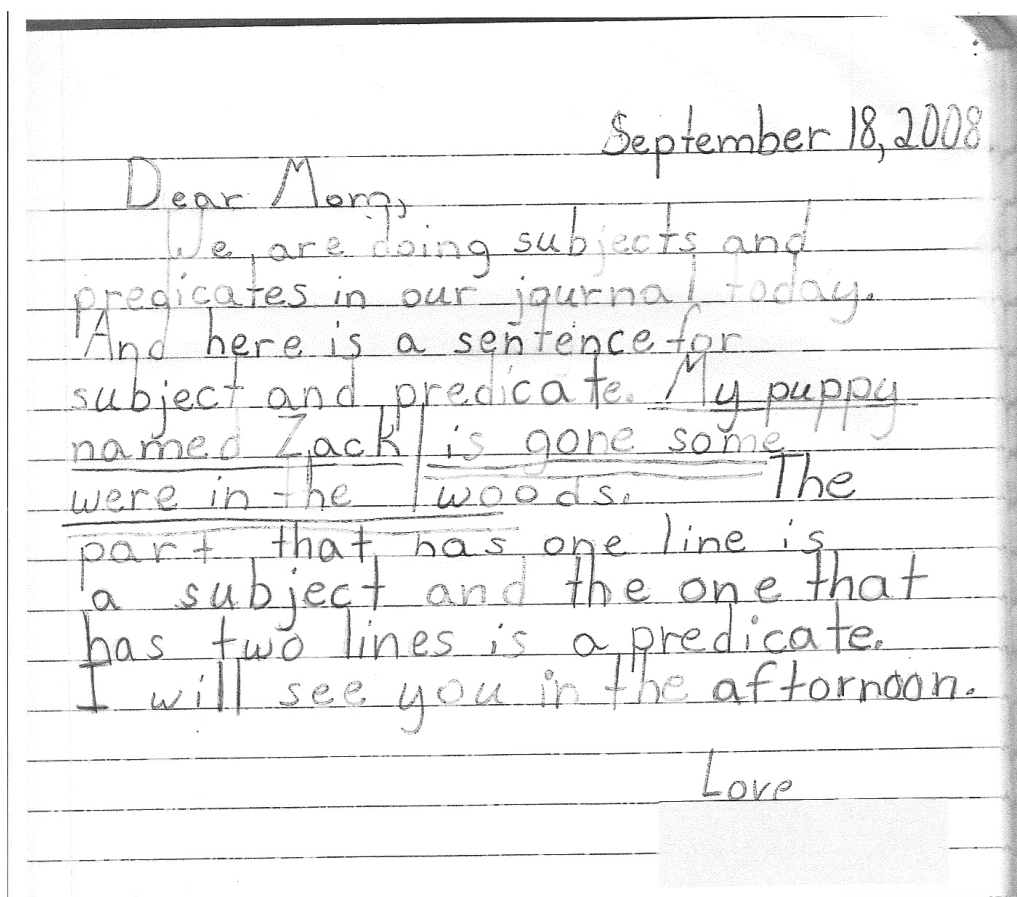 September 18, 2008
Dear Mom,
We are doing subjects and
predicates in our journal today.
And here is a sentence for
subject and predicate. My puppy
named Zack | is gone some
were in the woods. The
part that has one line is
a subject and the one that
has two lines is a predicate.
I will see you in the aftornoon.
Love